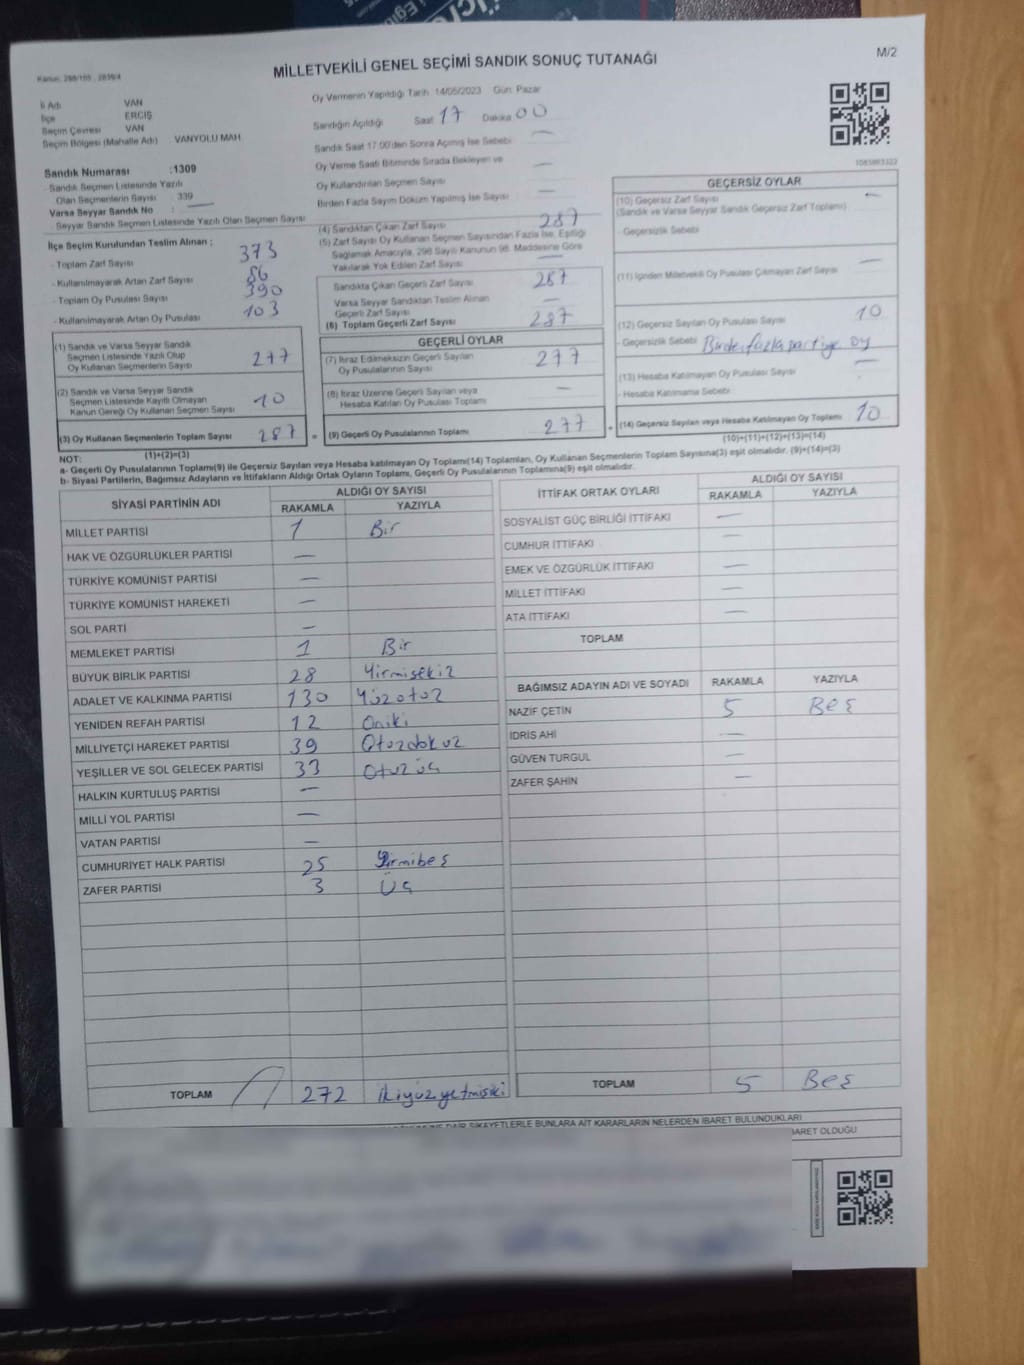 MİLLETVEKİLİ GENEL SEÇİMİ SANDIK SONUÇ TUTANAĞI
M/2
İl Adı VAN
İlçe ERCİŞ
Seçim Çevresi VAN
Seçim Bölgesi (Mahalle Adı) : VANYOLU MAH.
Sandık Numarası :1309
- Sandık Seçmen Listesinde Yazılı
Olan Seçmenlerin Sayısı : 339
Varsa Seyyar Sandık No : —
Seyyar Sandık Seçmen Listesinde Yazılı Olan Seçmen Sayısı
Oy Vermenin Yapıldığı Tarih: 14/05/2023 Gün: Pazar
Sandığın Açıldığı Saat 17 Dakika 00
Sandık Saat 17:00'den Sonra Açılmış İse Sebebi —
Oy Verme Saati Bitiminde Sırada Bekleyen ve
Oy Kullandırılan Seçmen Sayısı —
Birden Fazla Sayım Döküm Yapılmış İse Sayısı —
İlçe Seçim Kurulundan Teslim Alınan ;
- Toplam Zarf Sayısı 373
- Kullanılmayarak Artan Zarf Sayısı 86
- Toplam Oy Pusulası Sayısı 390
- Kullanılmayarak Artan Oy Pusulası 103
(1) Sandık ve Varsa Seyyar Sandık
Seçmen Listesinde Yazılı Olup
Oy Kullanan Seçmenlerin Sayısı 277
(2) Sandık ve Varsa Seyyar Sandık
Seçmen Listesinde Kayıtlı Olmayan
Kanun Gereği Oy Kullanan Seçmen Sayısı 10
(3) Oy Kullanan Seçmenlerin Toplam Sayısı 287
(1)+(2)=(3)
(4) Sandıktan Çıkan Zarf Sayısı 287
(5) Zarf Sayısı Oy Kullanan Seçmen Sayısından Fazla İse, Eşitliği
Sağlamak Amacıyla, 298 Sayılı Kanunun 98. Maddesine Göre
Yakılarak Yok Edilen Zarf Sayısı —
Sandıkta Çıkan Geçerli Zarf Sayısı 287
Varsa Seyyar Sandıktan Teslim Alınan
Geçerli Zarf Sayısı —
(6) Toplam Geçerli Zarf Sayısı 287
GEÇERLİ OYLAR
(7) İtiraz Edilmeksizin Geçerli Sayılan
Oy Pusulalarının Sayısı 277
(8) İtiraz Üzerine Geçerli Sayılan veya
Hesaba Katılan Oy Pusulası Toplamı —
= (9) Geçerli Oy Pusulalarının Toplamı 277
1083863322
GEÇERSİZ OYLAR
(10) Geçersiz Zarf Sayısı —
(Sandık ve Varsa Seyyar Sandık Geçersiz Zarf Toplamı)
- Geçersizlik Sebebi
(11) İçinden Milletvekili Oy Pusulası Çıkmayan Zarf Sayısı —
(12) Geçersiz Sayılan Oy Pusulası Sayısı 10
- Geçersizlik Sebebi : Birden fazla partiye oy
(13) Hesaba Katılmayan Oy Pusulası Sayısı —
- Hesaba Katılmama Sebebi :
+ (14) Geçersiz Sayılan veya Hesaba Katılmayan Oy Toplamı 10
(10)+(11)+(12)+(13)=(14)
NOT:
a- Geçerli Oy Pusulalarının Toplamı(9) ile Geçersiz Sayılan veya Hesaba katılmayan Oy Toplamı(14) Toplamları, Oy Kullanan Seçmenlerin Toplam Sayısına(3) eşit olmalıdır. (9)+(14)=(3)
b- Siyasi Partilerin, Bağımsız Adayların ve İttifakların Aldığı Ortak Oyların Toplamı, Geçerli Oy Pusulalarının Toplamına(9) eşit olmalıdır.
SİYASİ PARTİNİN ADI ALDIĞI OY SAYISI
RAKAMLA YAZIYLA
MİLLET PARTİSİ 1 Bir
HAK VE ÖZGÜRLÜKLER PARTİSİ —
TÜRKİYE KOMÜNİST PARTİSİ —
TÜRKİYE KOMÜNİST HAREKETİ —
SOL PARTİ —
MEMLEKET PARTİSİ 1 Bir
BÜYÜK BİRLİK PARTİSİ 28 Yirmisekiz
ADALET VE KALKINMA PARTİSİ 130 Yüzotuz
YENİDEN REFAH PARTİSİ 12 Oniki
MİLLİYETÇİ HAREKET PARTİSİ 39 Otuzdokuz
YEŞİLLER VE SOL GELECEK PARTİSİ 33 Otuz üç
HALKIN KURTULUŞ PARTİSİ —
MİLLİ YOL PARTİSİ —
VATAN PARTİSİ —
CUMHURİYET HALK PARTİSİ 25 Yirmibeş
ZAFER PARTİSİ 3 Üç
TOPLAM 272 ikiyüzyetmişiki
İTTİFAK ORTAK OYLARI ALDIĞI OY SAYISI
RAKAMLA YAZIYLA
SOSYALİST GÜÇ BİRLİĞİ İTTİFAKI —
CUMHUR İTTİFAKI —
EMEK VE ÖZGÜRLÜK İTTİFAKI —
MİLLET İTTİFAKI —
ATA İTTİFAKI —
TOPLAM
BAĞIMSIZ ADAYIN ADI VE SOYADI RAKAMLA YAZIYLA
NAZİF ÇETİN 5 Beş
İDRİS AHİ —
GÜVEN TURGUL —
ZAFER ŞAHİN —
TOPLAM 5 Beş
ŞİKAYETLERLE BUNLARA AİT KARARLARIN NELERDEN İBARET BULUNDUKLARI
OLDUĞU